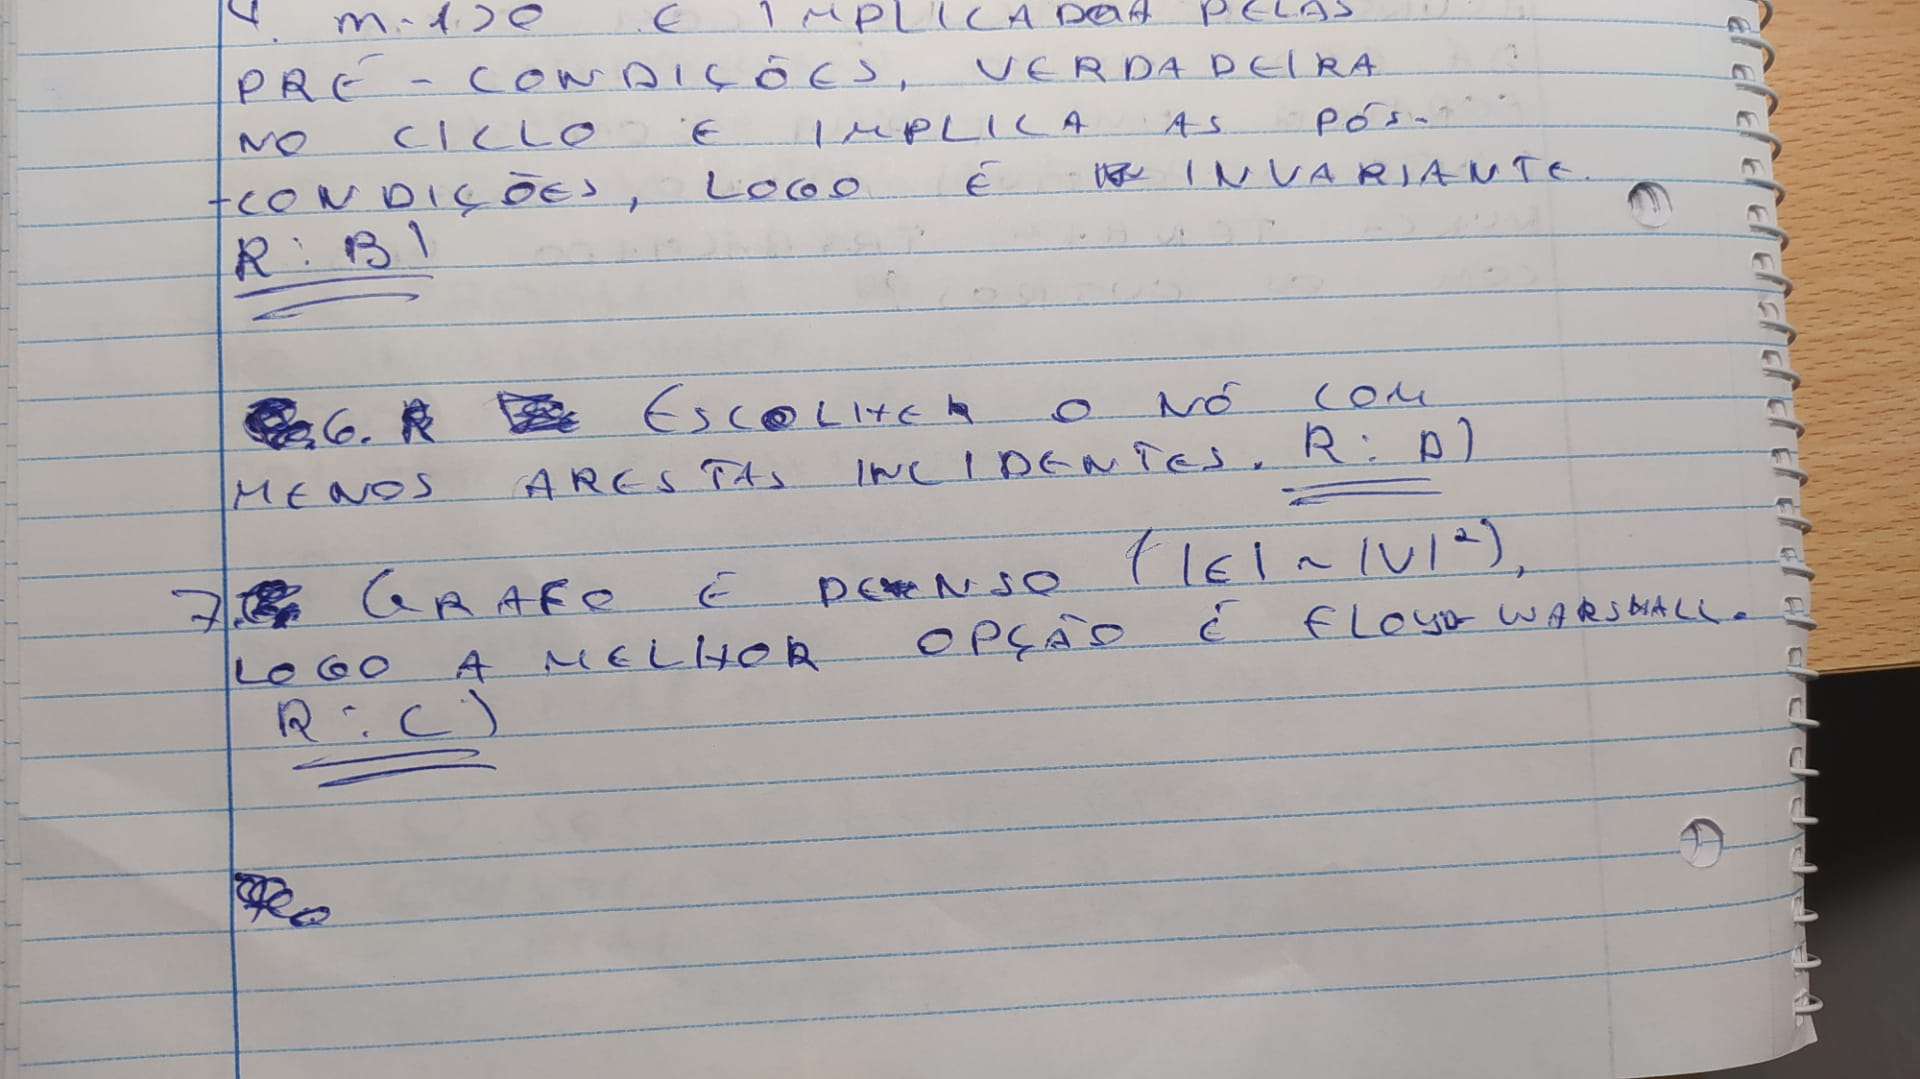 4. m-1>0 E IMPLICADA PELAS
PRÉ-CONDIÇÕES, VERDADEIRA
NO CICLO E IMPLICA AS PÓS-
-CONDIÇÕES, LOGO É INVARIANTE.
R: B)
6. ESCOLHER O NÓ COM
MENOS ARESTAS INCIDENTES. R: D)
7. GRAFO É DENSO (|E| ~ |V|²),
LOGO A MELHOR OPÇÃO É FLOYD-WARSHALL.
R: C)